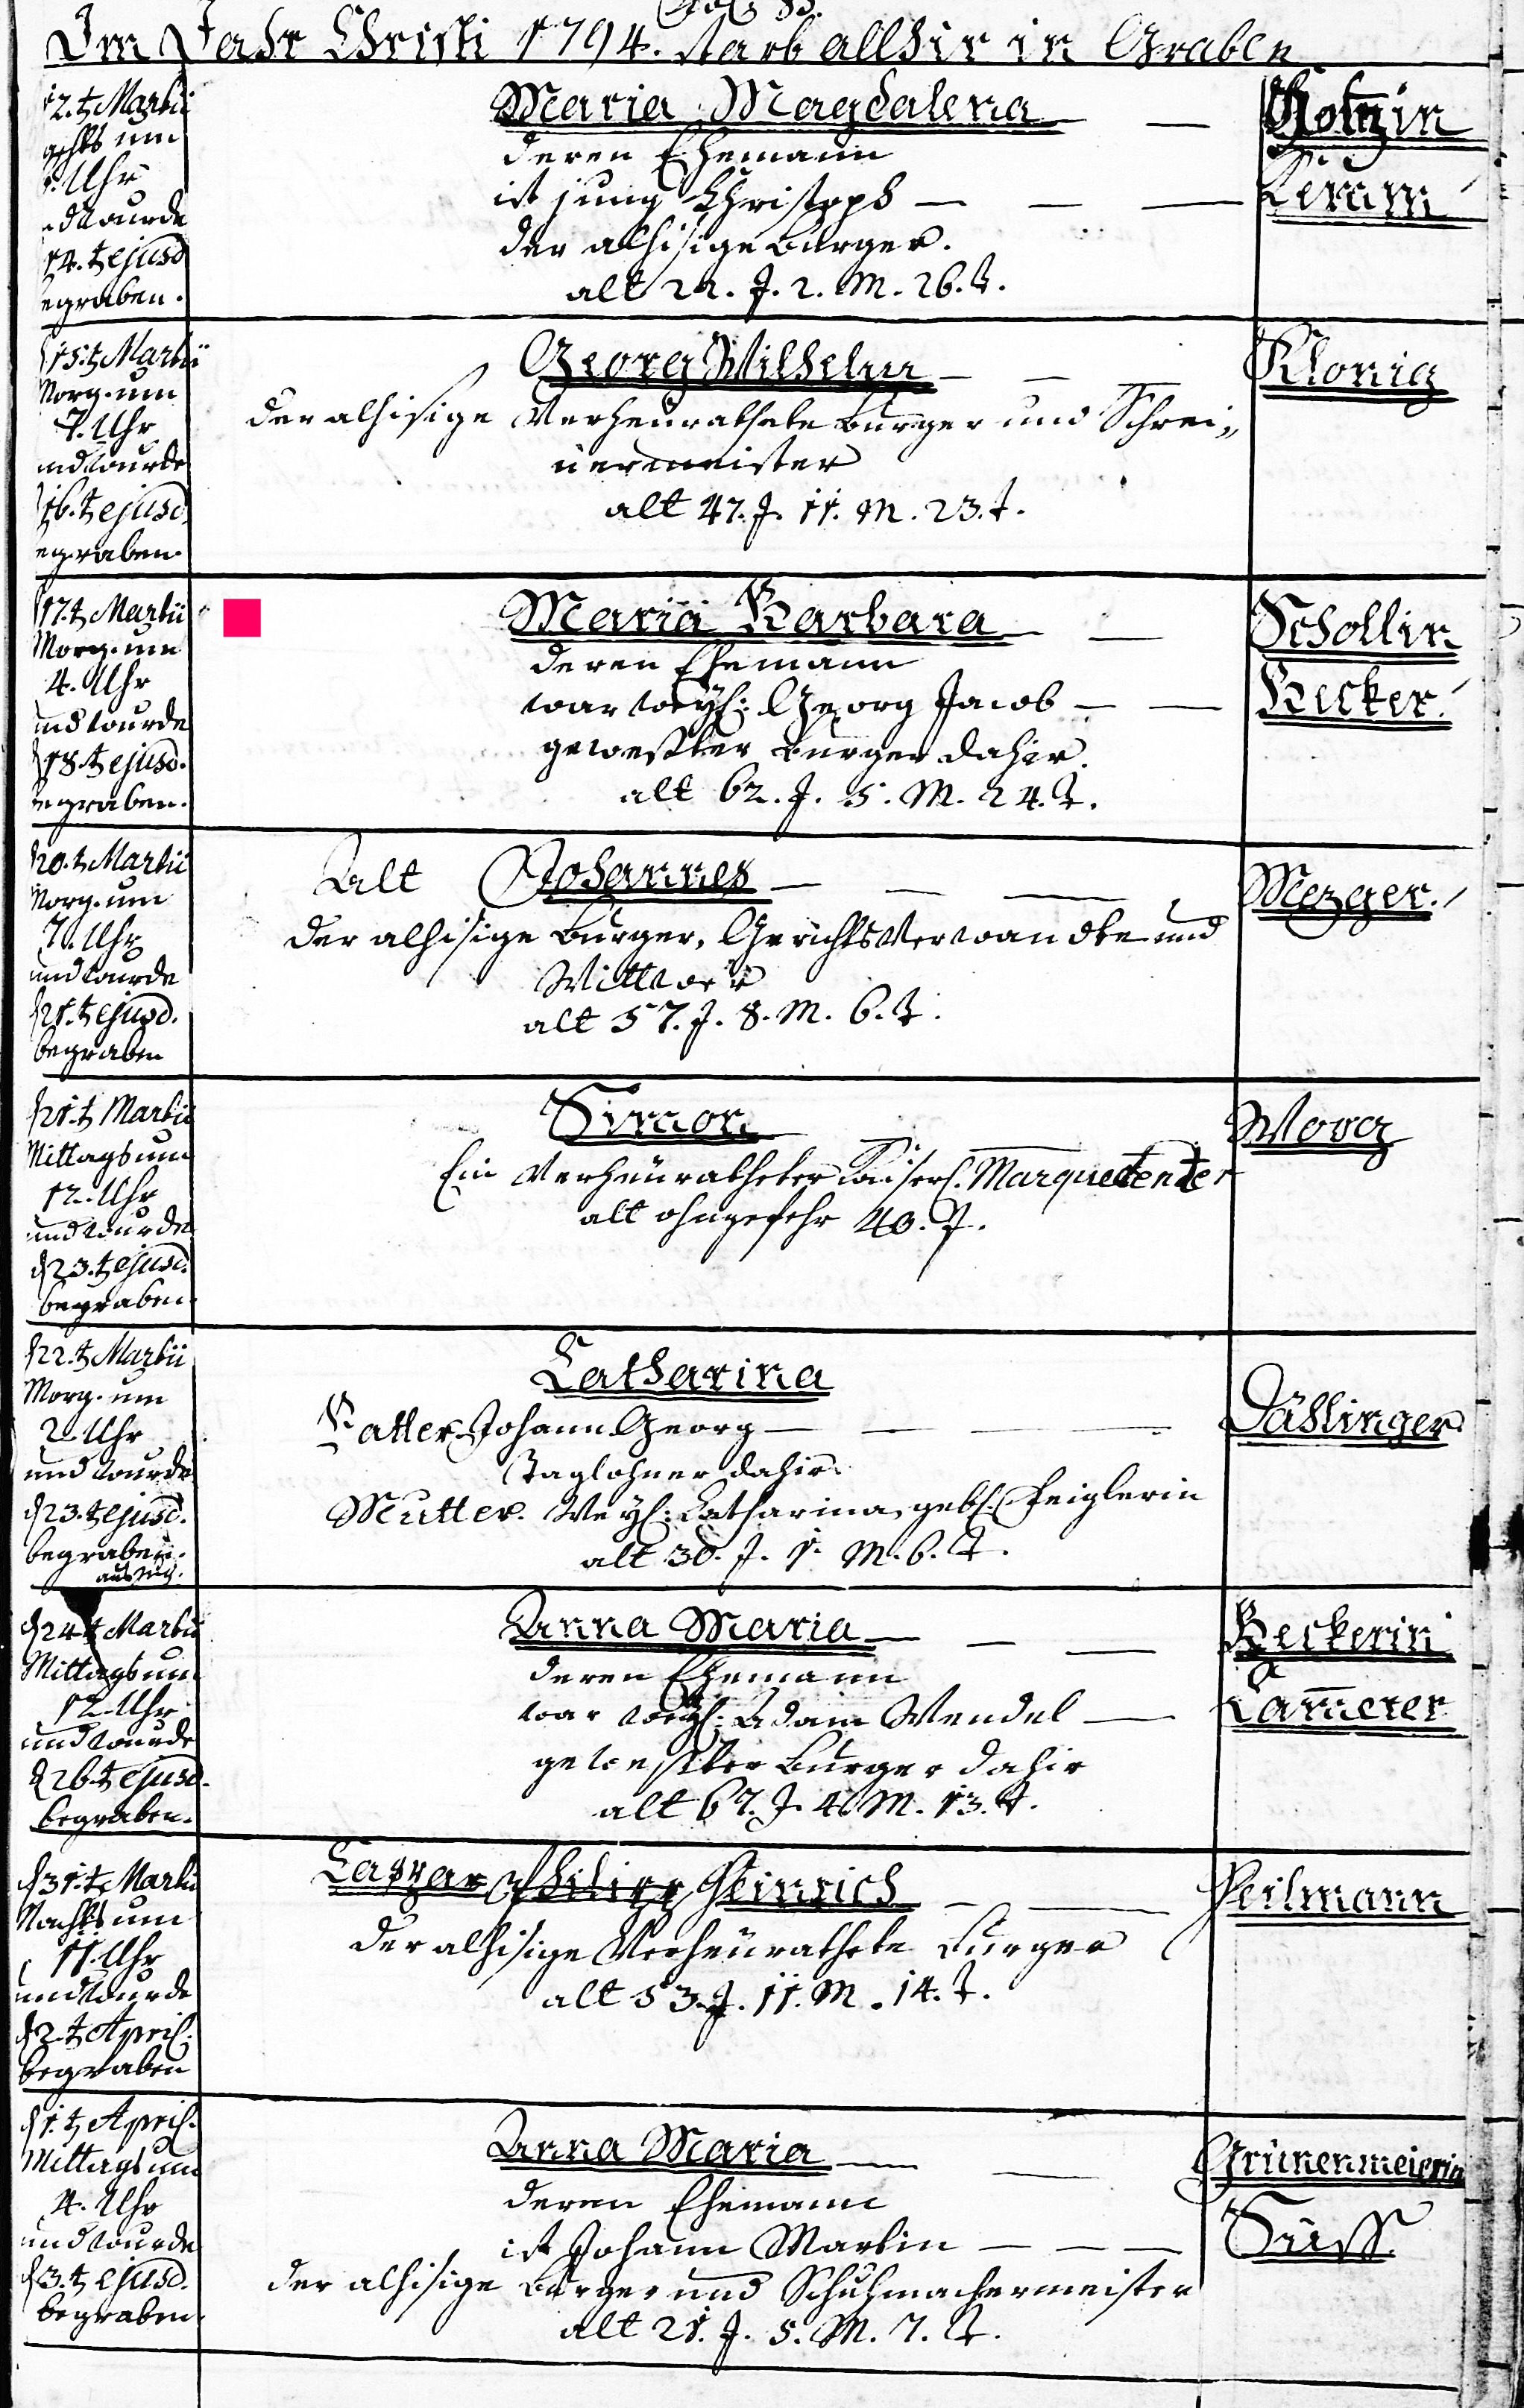 Fol. 85.
Im Jahr Christi 1794. starb allhir in Graben
12.t Martii
achts um
Uhr
nd wurde
14.t ejusd
egraben.
Maria Magdalena
deren Ehemann
ist jung Christoph
der alhisige Burger.
alt 22. J. 2. M. 26. T.
15.t Martii
Morg. um
7. Uhr
und wurde
16.t ejusd.
egraben.
Georg Wilhelm
Klonig
der alhisige Verheurathete Burger und Schrei„
nermeister
alt 47. J. 11. M. 23. T.
17.t Martii
Morg. um
4. Uhr
und wurde
18.t ejusd.
egraben.
Maria Barbara
Schollin
deren Ehemann
war weyl: Georg Jacob
Becker.
gewesster Burger dahir.
alt 62. J. 5. M. 24. T.
20.t Martii
Morg. um
7. Uhr
und wurde
21.t ejusd.
begraben
Alt Johannes
Mezger.
der alhisige Burger, Gerichts Verwandte und
Wittwer
alt 57. J. 8. M. 6. T.
d 21.t Martii
Mittags um
12. Uhr
und wurde
d 23.t ejusd.
begraben.
Simon
Worg
Ein Verheuratheter Kaiserl. Marquetender
alt ohngefehr 40. J.
d 22.t Martii
Morg. um
2 Uhr
und wurde
d 23.t ejusd.
begraben.
Catharina
Vatter Johann Georg
Däslinger
Taglohner dahir.
Mutter. Weyl: Catharina, gebl. Zeiglerin
alt 30. J. 1. M. 6. T.
d 24.t Martii
Mittags um
12. Uhr
und wurde
d 26.t ejusd.
begraben.
Anna Maria
Beckerin
deren Ehemann
war weyl: Adam Wendel
Camerer
gewesster Burger dahir
alt 67. J. 4. M. 13. T.
d 31.t Martii
Nachts um
11. Uhr
und wurde
d 2.t April:
begraben
Caspar Philipp Heinrich
Heilmann
der alhisige Verheurathete Burger
alt 53. J. 11. M. 14. T.
d 1.t April.
Mittags um
4. Uhr
und wurde
d 3.t ejusd.
begraben.
Anna Maria
Grünenmeierin
deren Ehemann
ist Johann Martin
Süss
der alhisige Burger und Schuhmachermeister
alt 21. J. 5. M. 7. T.